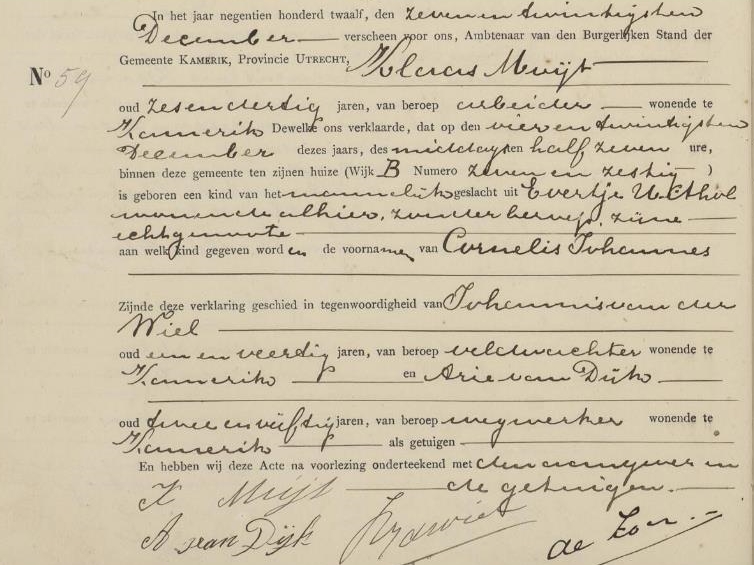 In het jaar negentien honderd twaalf, den zeven en twintigsten
December verscheen voor ons, Ambtenaar van den Burgerlijken Stand der
Gemeente KAMERIK, Provincie UTRECHT, Klaas Muijt
No 59
oud zesendertig jaren, van beroep arbeider wonende te
Kamerik Dewelke ons verklaarde, dat op den vier en twintigsten
December dezes jaars, des middags ten half zeven ure,
binnen deze gemeente ten zijnen huize (Wijk B Numero zeven en zestig )
is geboren een kind van het mannelijk geslacht uit Evertje
wonende alhier, zonder beroep, zijne
echtgenoote
aan welk kind gegeven worden de voornamen van Cornelis Johannes
Zijnde deze verklaring geschied in tegenwoordigheid van Johannis van der
Wiel
oud een en veertig jaren, van beroep veldwachter wonende te
Kamerik en Arie van Dijk
oud twee en vijftig jaren, van beroep wegwerker wonende te
Kamerik als getuigen
En hebben wij deze Acte na voorlezing onderteekend met den aangever en
de getuigen.
K Muijt
A van Dijk